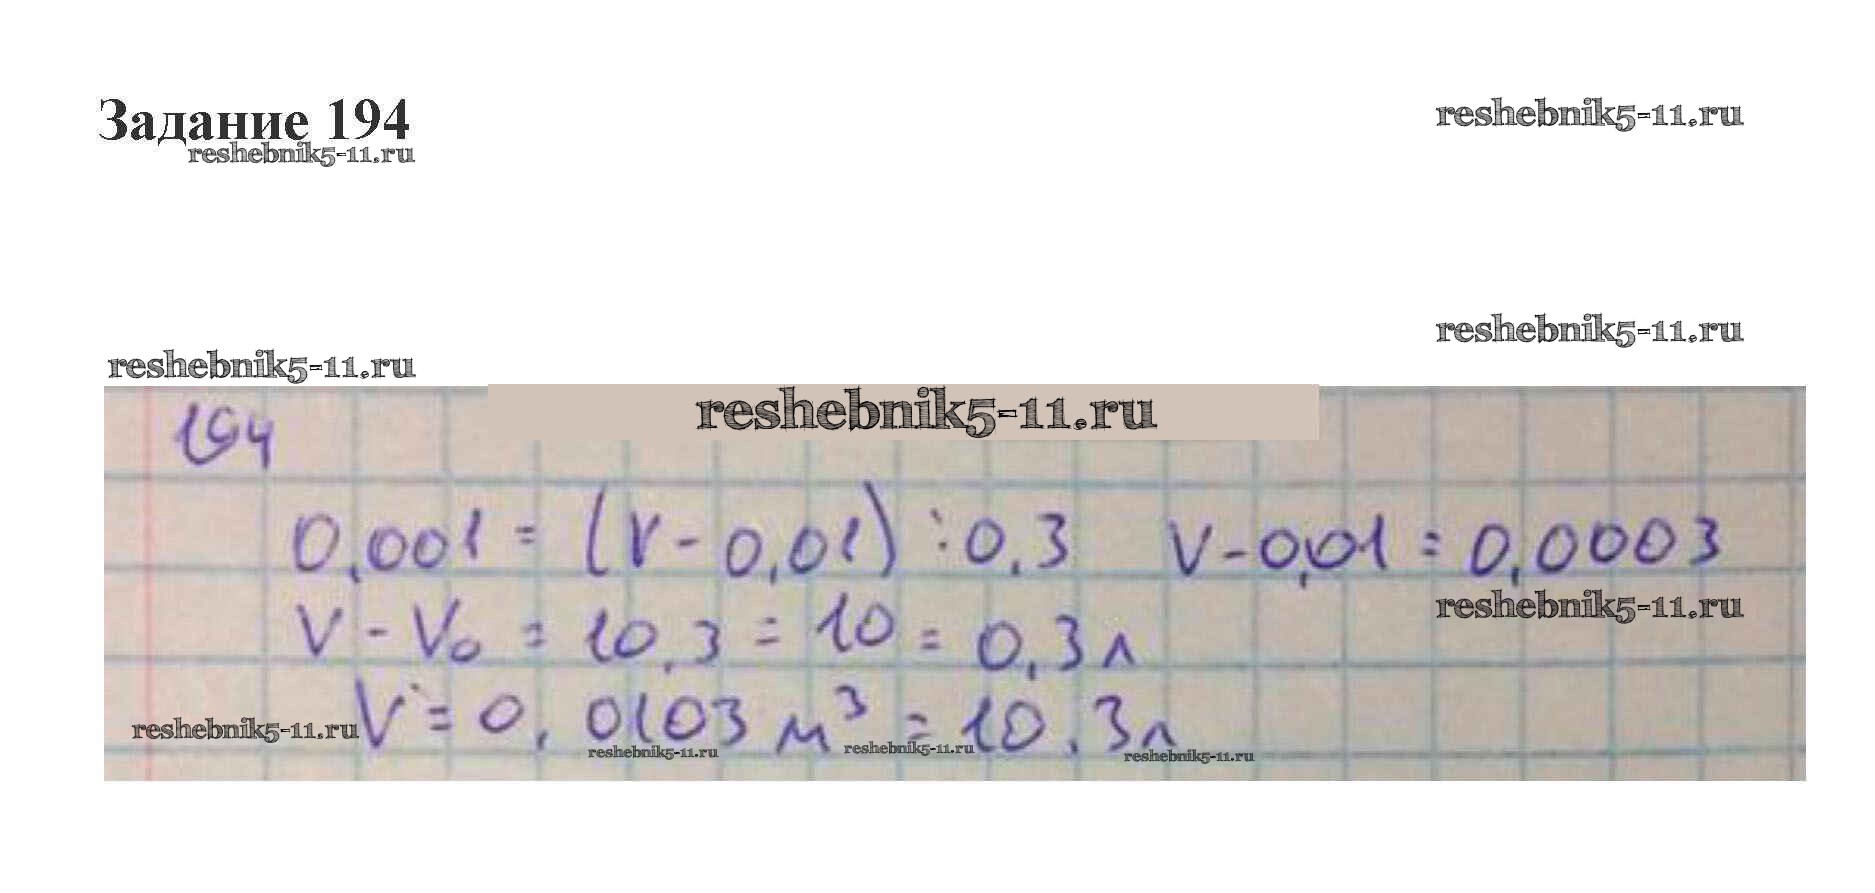 Задание 194
reshebnik5-11.ru
reshebnik5-11.ru
reshebnik5-11.ru
reshebnik5-11.ru
reshebnik5-11.ru
194
0,001 = (V - 0,01) : 0,3   V - 0,01 = 0,0003
reshebnik5-11.ru
V - V₀ = 10,3 = 10 = 0,3 л
V = 0,0103 м³ = 10,3 л
reshebnik5-11.ru
reshebnik5-11.ru
reshebnik5-11.ru
reshebnik5-11.ru